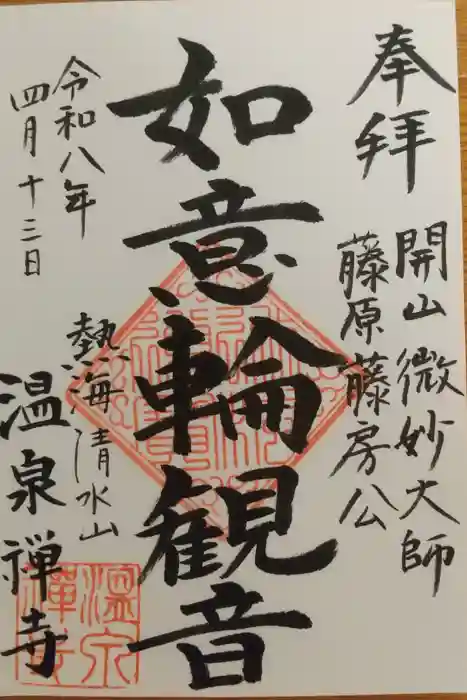 奉拝
開山微妙大師
藤原藤房公
如意輪観音
令和八年
四月十三日
熱海清水山
温泉禅寺
温泉
禅寺